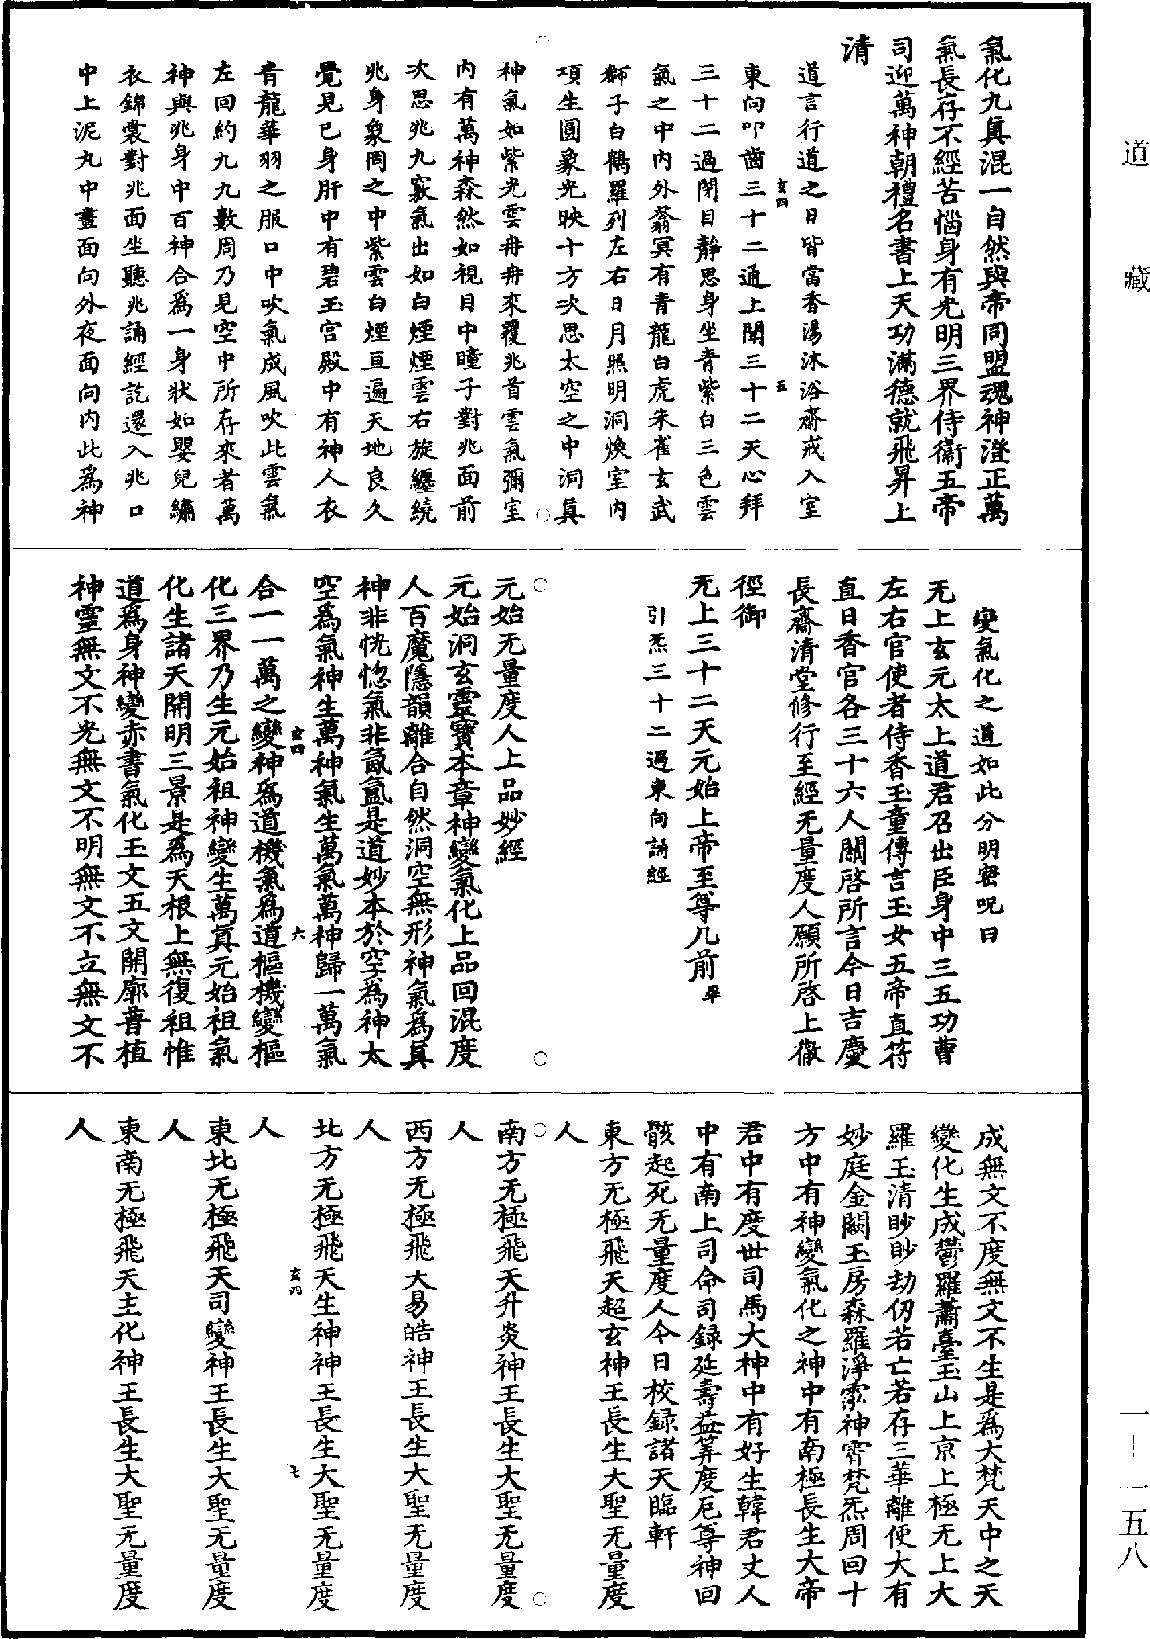 道藏
一—一五八
氣化九真混一自然與帝同盟魂神澄正萬
氣長存不經苦惱身有光明三界侍衛五帝
司迎萬神朝禮名書上天功滿德就飛昇上
清
道言行道之日皆當香湯沐浴齋戒入室
東向叩齒三十二通上聞三十二天心拜
三十二過閉目靜思身坐青紫白三色雲
氣之中內外蓊冥有青龍白虎朱雀玄武
獅子白鶴羅列左右日月照明洞煥室內
項生圓象光映十方次思太空之中洞真
神氣如紫光雲冉冉來覆兆首雲氣彌室
內有萬神森然如視目中瞳子對兆面前
次思兆九竅氣出如白煙煙雲右旋纏繞
兆身象罔之中紫雲白煙亘遍天地良久
覺見已身肝中有碧玉宮殿中有神人衣
青龍華羽之服口中吹氣成風吹此雲氣
左回約九九數周乃見空中所存來者萬
神與兆身中百神合為一身狀如嬰兒繡
衣錦裳對兆面坐聽兆誦經訖還入兆口
中上泥丸中晝面向外夜面向內此為神
玄四
五
變氣化之道如此分明密呪曰
无上玄元太上道君召出臣身中三五功曹
左右官使者侍香玉童傳言玉女五帝直符
直日香官各三十六人關啓所言今日吉慶
長齋清堂修行至經无量度人願所啓上徹
徑御
无上三十二天元始上帝至尊几前畢
引炁三十二過東向誦經
元始无量度人上品妙經
元始洞玄靈寶本章神變氣化上品回混度
人百魔隱韻離合自然洞空無形神氣為真
神非恍惚氣非氤氳是道妙本於空為神太
空為氣神生萬神氣生萬氣萬神歸一萬氣
玄四
六
合一一萬之變神為道機氣為道樞機變樞
化三界乃生元始祖神變生萬真元始祖氣
化生諸天開明三景是為天根上無復祖惟
道為身神變赤書氣化玉文五文開廓普植
神靈無文不光無文不明無文不立無文不
成無文不度無文不生是為大梵天中之天
變化生成鬱羅蕭臺玉山上京上極无上大
羅玉清眇眇劫仞若亡若存三華離便大有
妙庭金闕玉房森羅淨泓神霄梵炁周回十
方中有神變氣化之神中有南極長生大帝
君中有度世司馬大神中有好生韓君丈人
中有南上司命司錄延壽益筭度厄尊神回
骸起死无量度人今日校錄諸天臨軒
東方无極飛天超玄神王長生大聖无量度
人
南方无極飛天升炎神王長生大聖无量度
人
西方无極飛大易皓神王長生大聖无量度
人
北方无極飛天生神神王長生大聖无量度
玄四
七
人
東北无極飛天司變神王長生大聖无量度
人
東南无極飛天主化神王長生大聖无量度
人